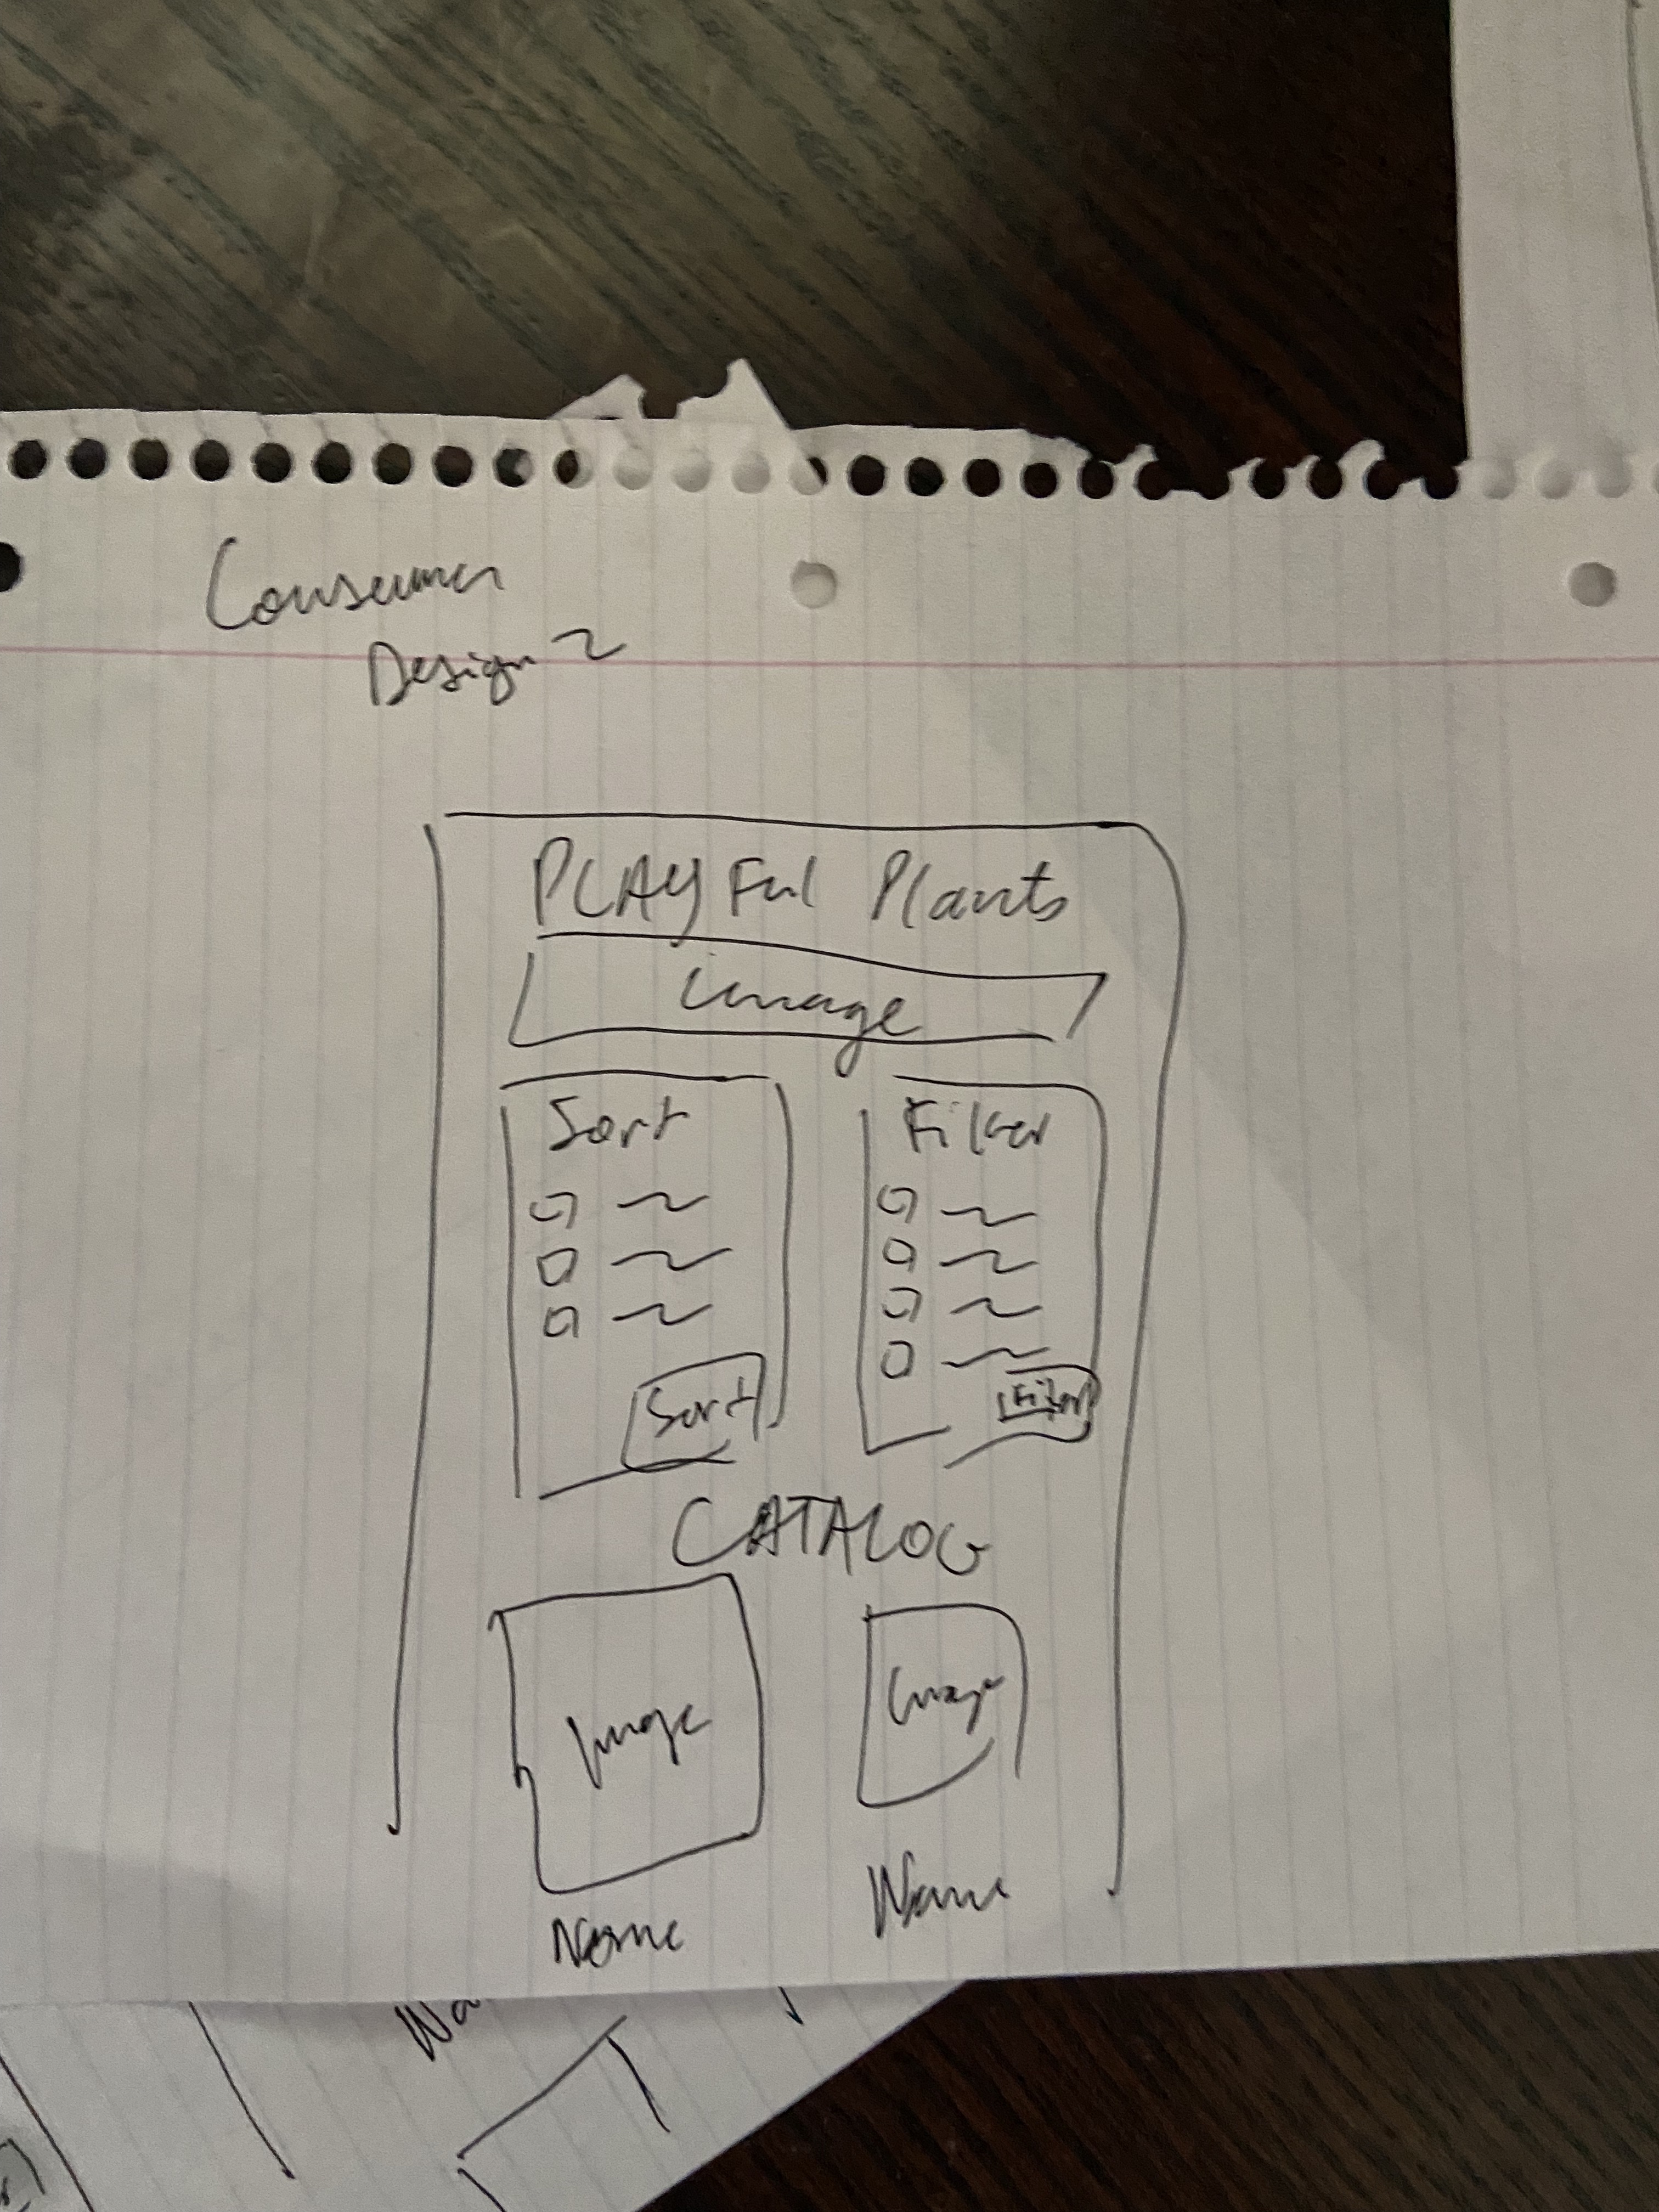 Consumer
Design 2
PLAYFul Plants
image
Sort
Filter
Sort
Filter
CATALOG
Image
Image
Name
Name